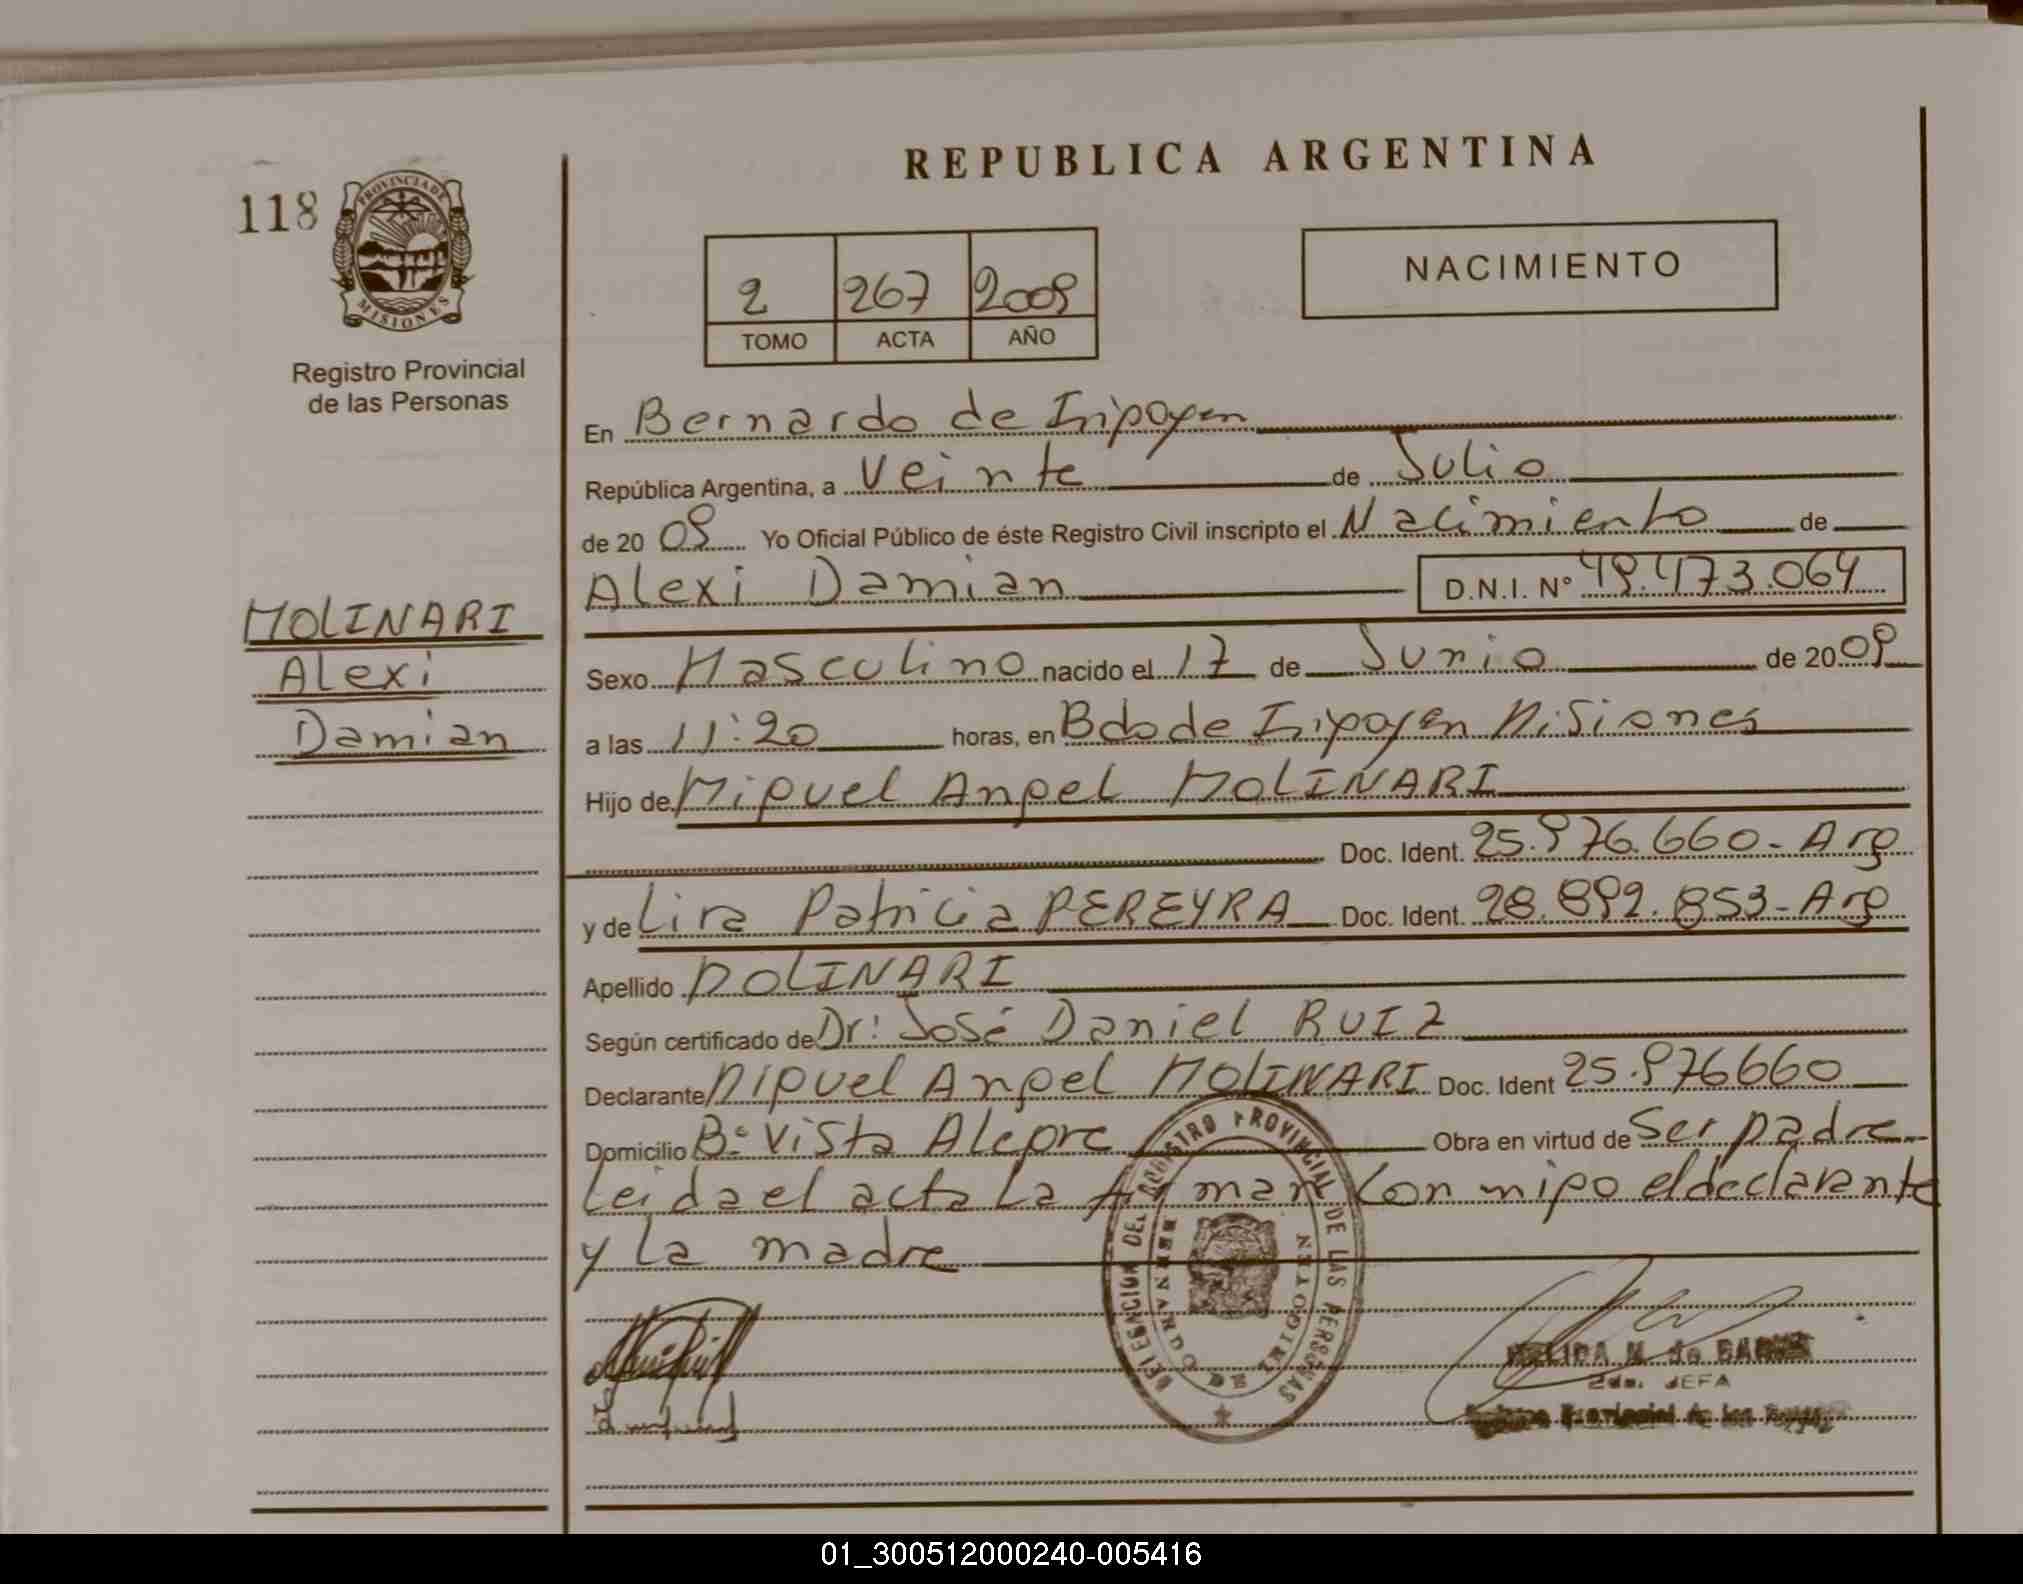 REPUBLICA ARGENTINA
118
PROVINCIA DE
MISIONES
Registro Provincial
de las Personas
2 267 2009
TOMO ACTA AÑO
NACIMIENTO
En Bernardo de Irigoyen
República Argentina, a Veinte de Julio
de 2009 Yo Oficial Público de éste Registro Civil inscripto el Nacimiento de
Alexi Damian D.N.I. Nº 49.473.064
MOLINARI
Alexi
Damian
Sexo Masculino nacido el 17 de Junio de 2009
a las 11:20 horas, en Bdo de Irigoyen Misiones
Hijo de Miguel Angel MOLINARI
Doc. Ident. 25.976.660- Arg
y de Lira Patricia PEREYRA Doc. Ident. 28.892.853- Arg
Apellido MOLINARI
Según certificado de Dr: José Daniel RUIZ
Declarante Miguel Angel MOLINARI Doc. Ident 25.976660
Domicilio Bº Vista Alegre Obra en virtud de Ser padre
Leida el acta La firman Con migo el declarante
y La madre
DELEGACION DEL REGISTRO PROVINCIAL DE LAS PERSONAS
BERNARDO DE IRIGOYEN
2da. JEFA
01_300512000240-005416